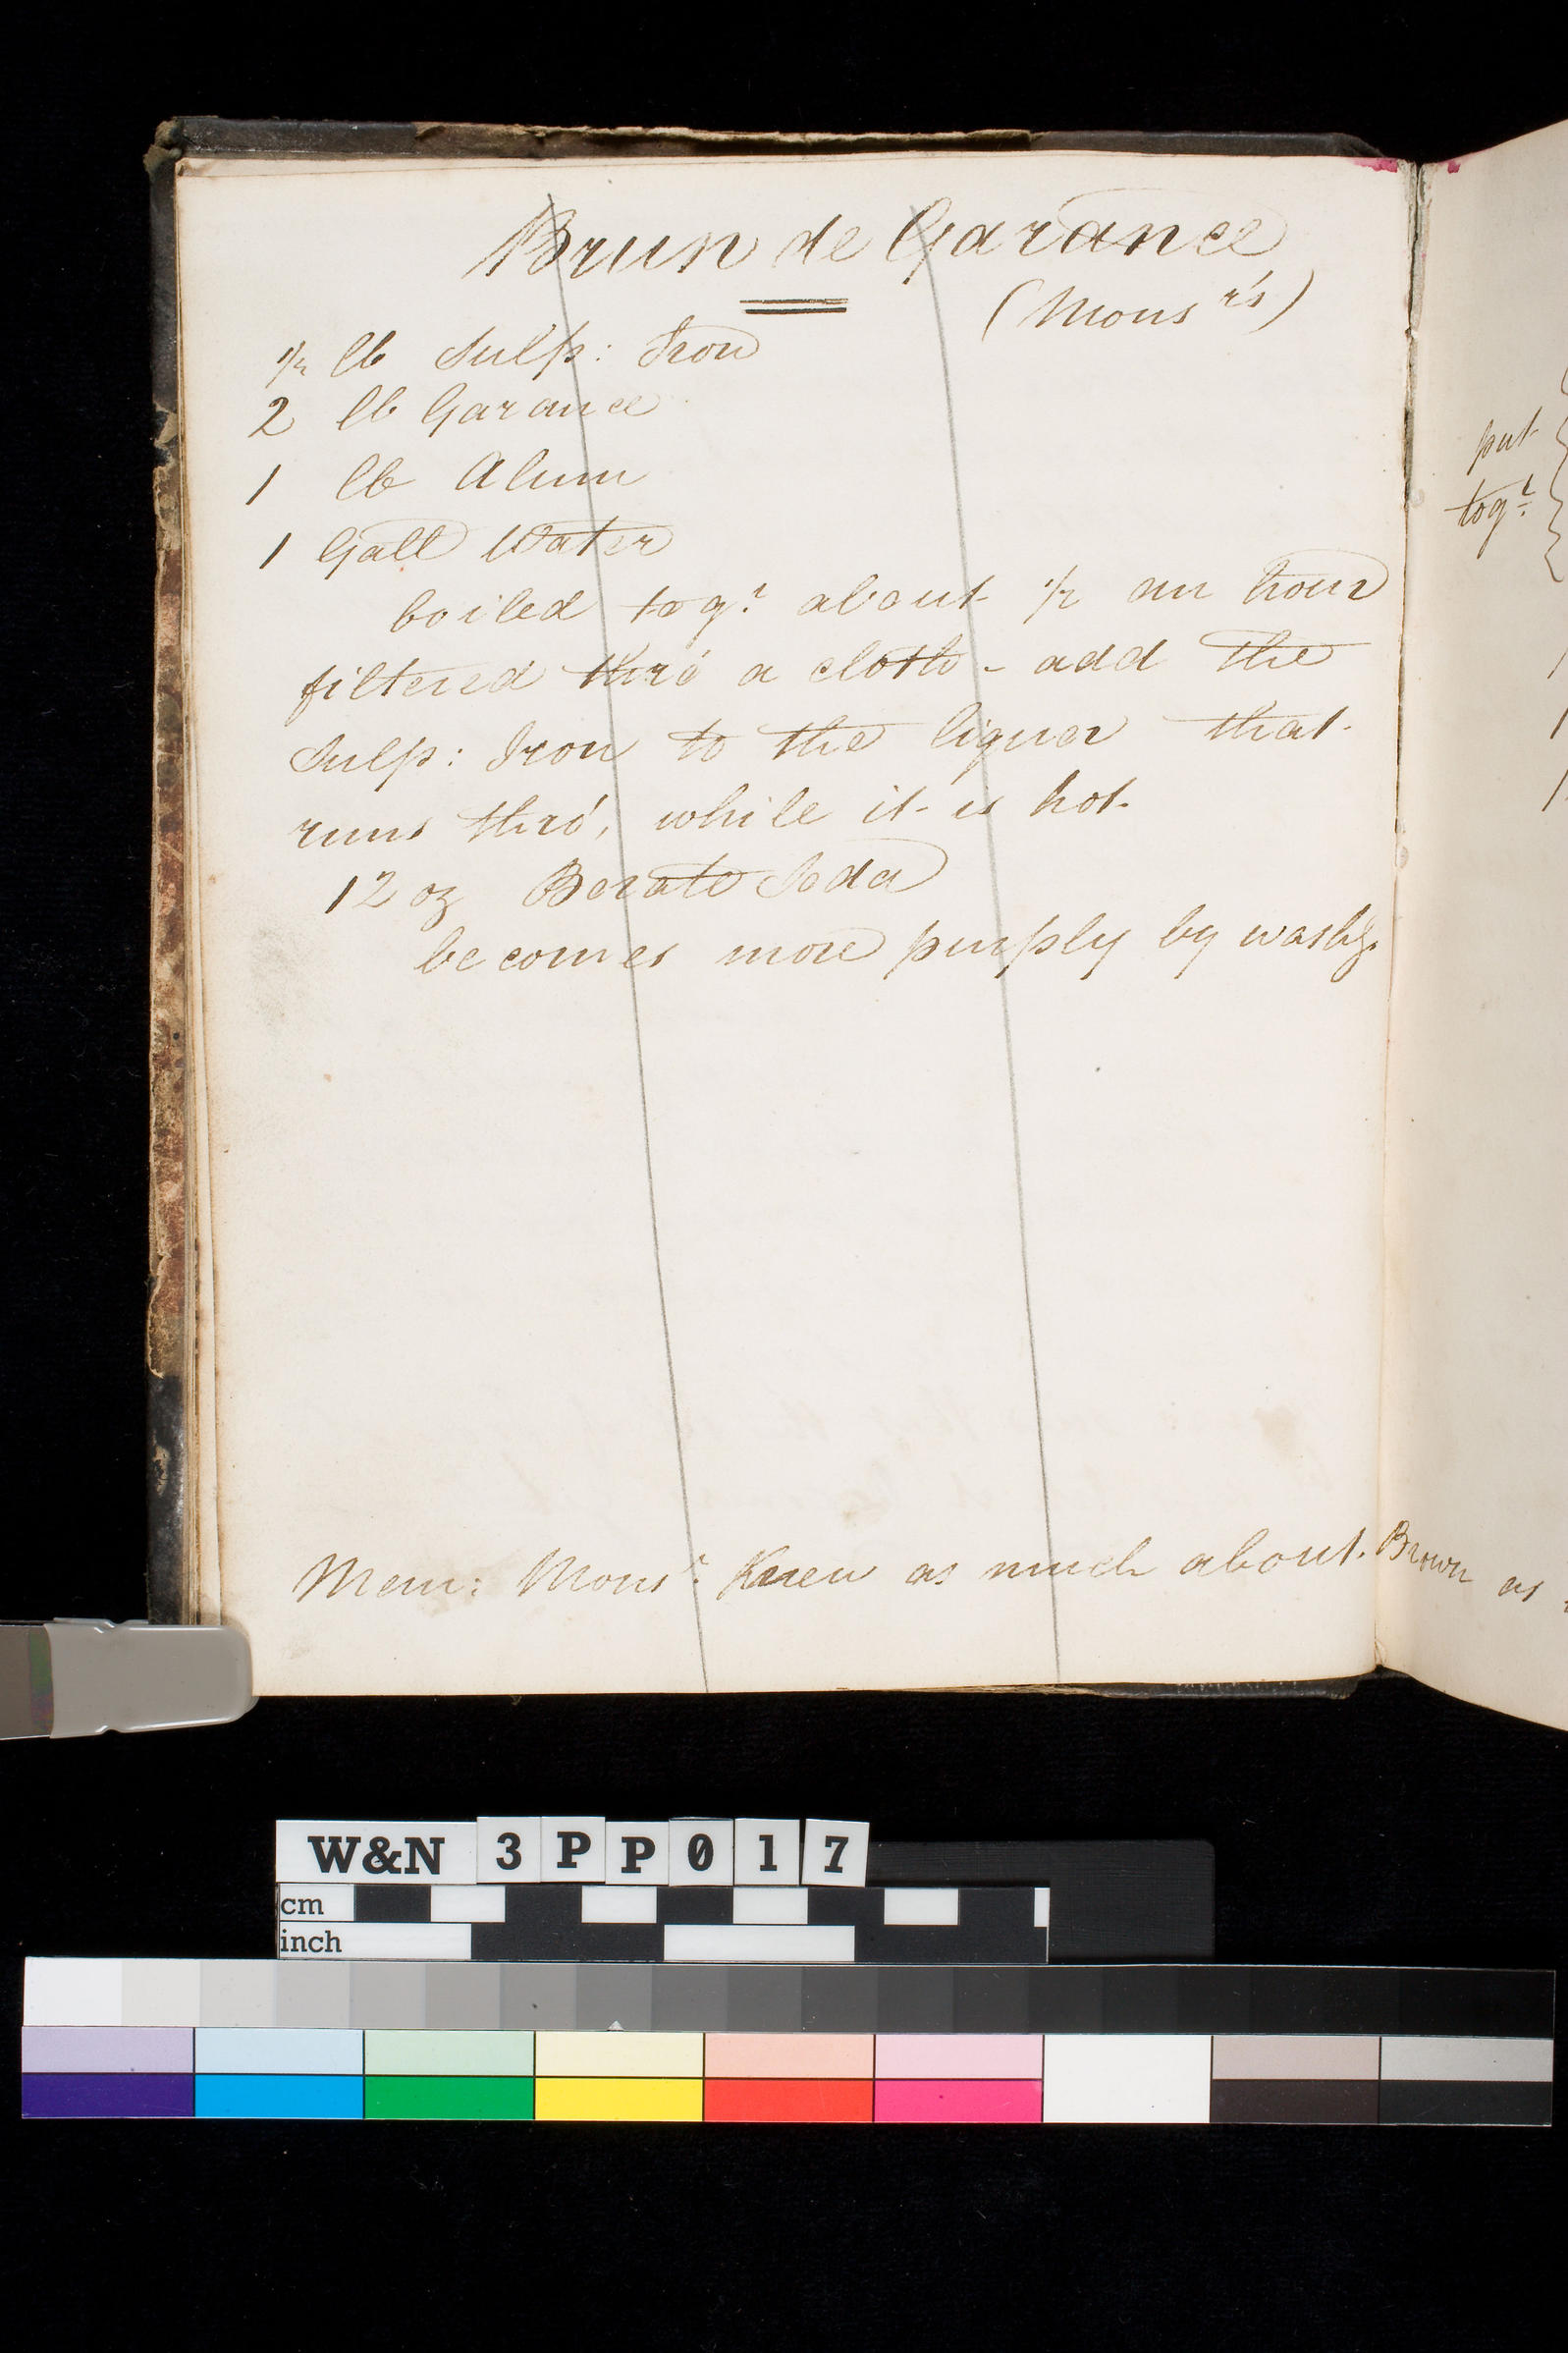 Brun de Garance
(Monsr's)
1/2 lb Sulp: Iron
2 lb Garance
1 lb Alum
1 Gall Water
boiled togr about 1/2 an hour
filtered thro' a cloth - add the
Sulp: Iron to the liquor that
runs thro', while it is hot.
12 oz Borate Soda
becomes more purply by washg.
Mem: Monsr. Knew as much about Brown as
put
togr.
W&N 3PP017
cm
inch